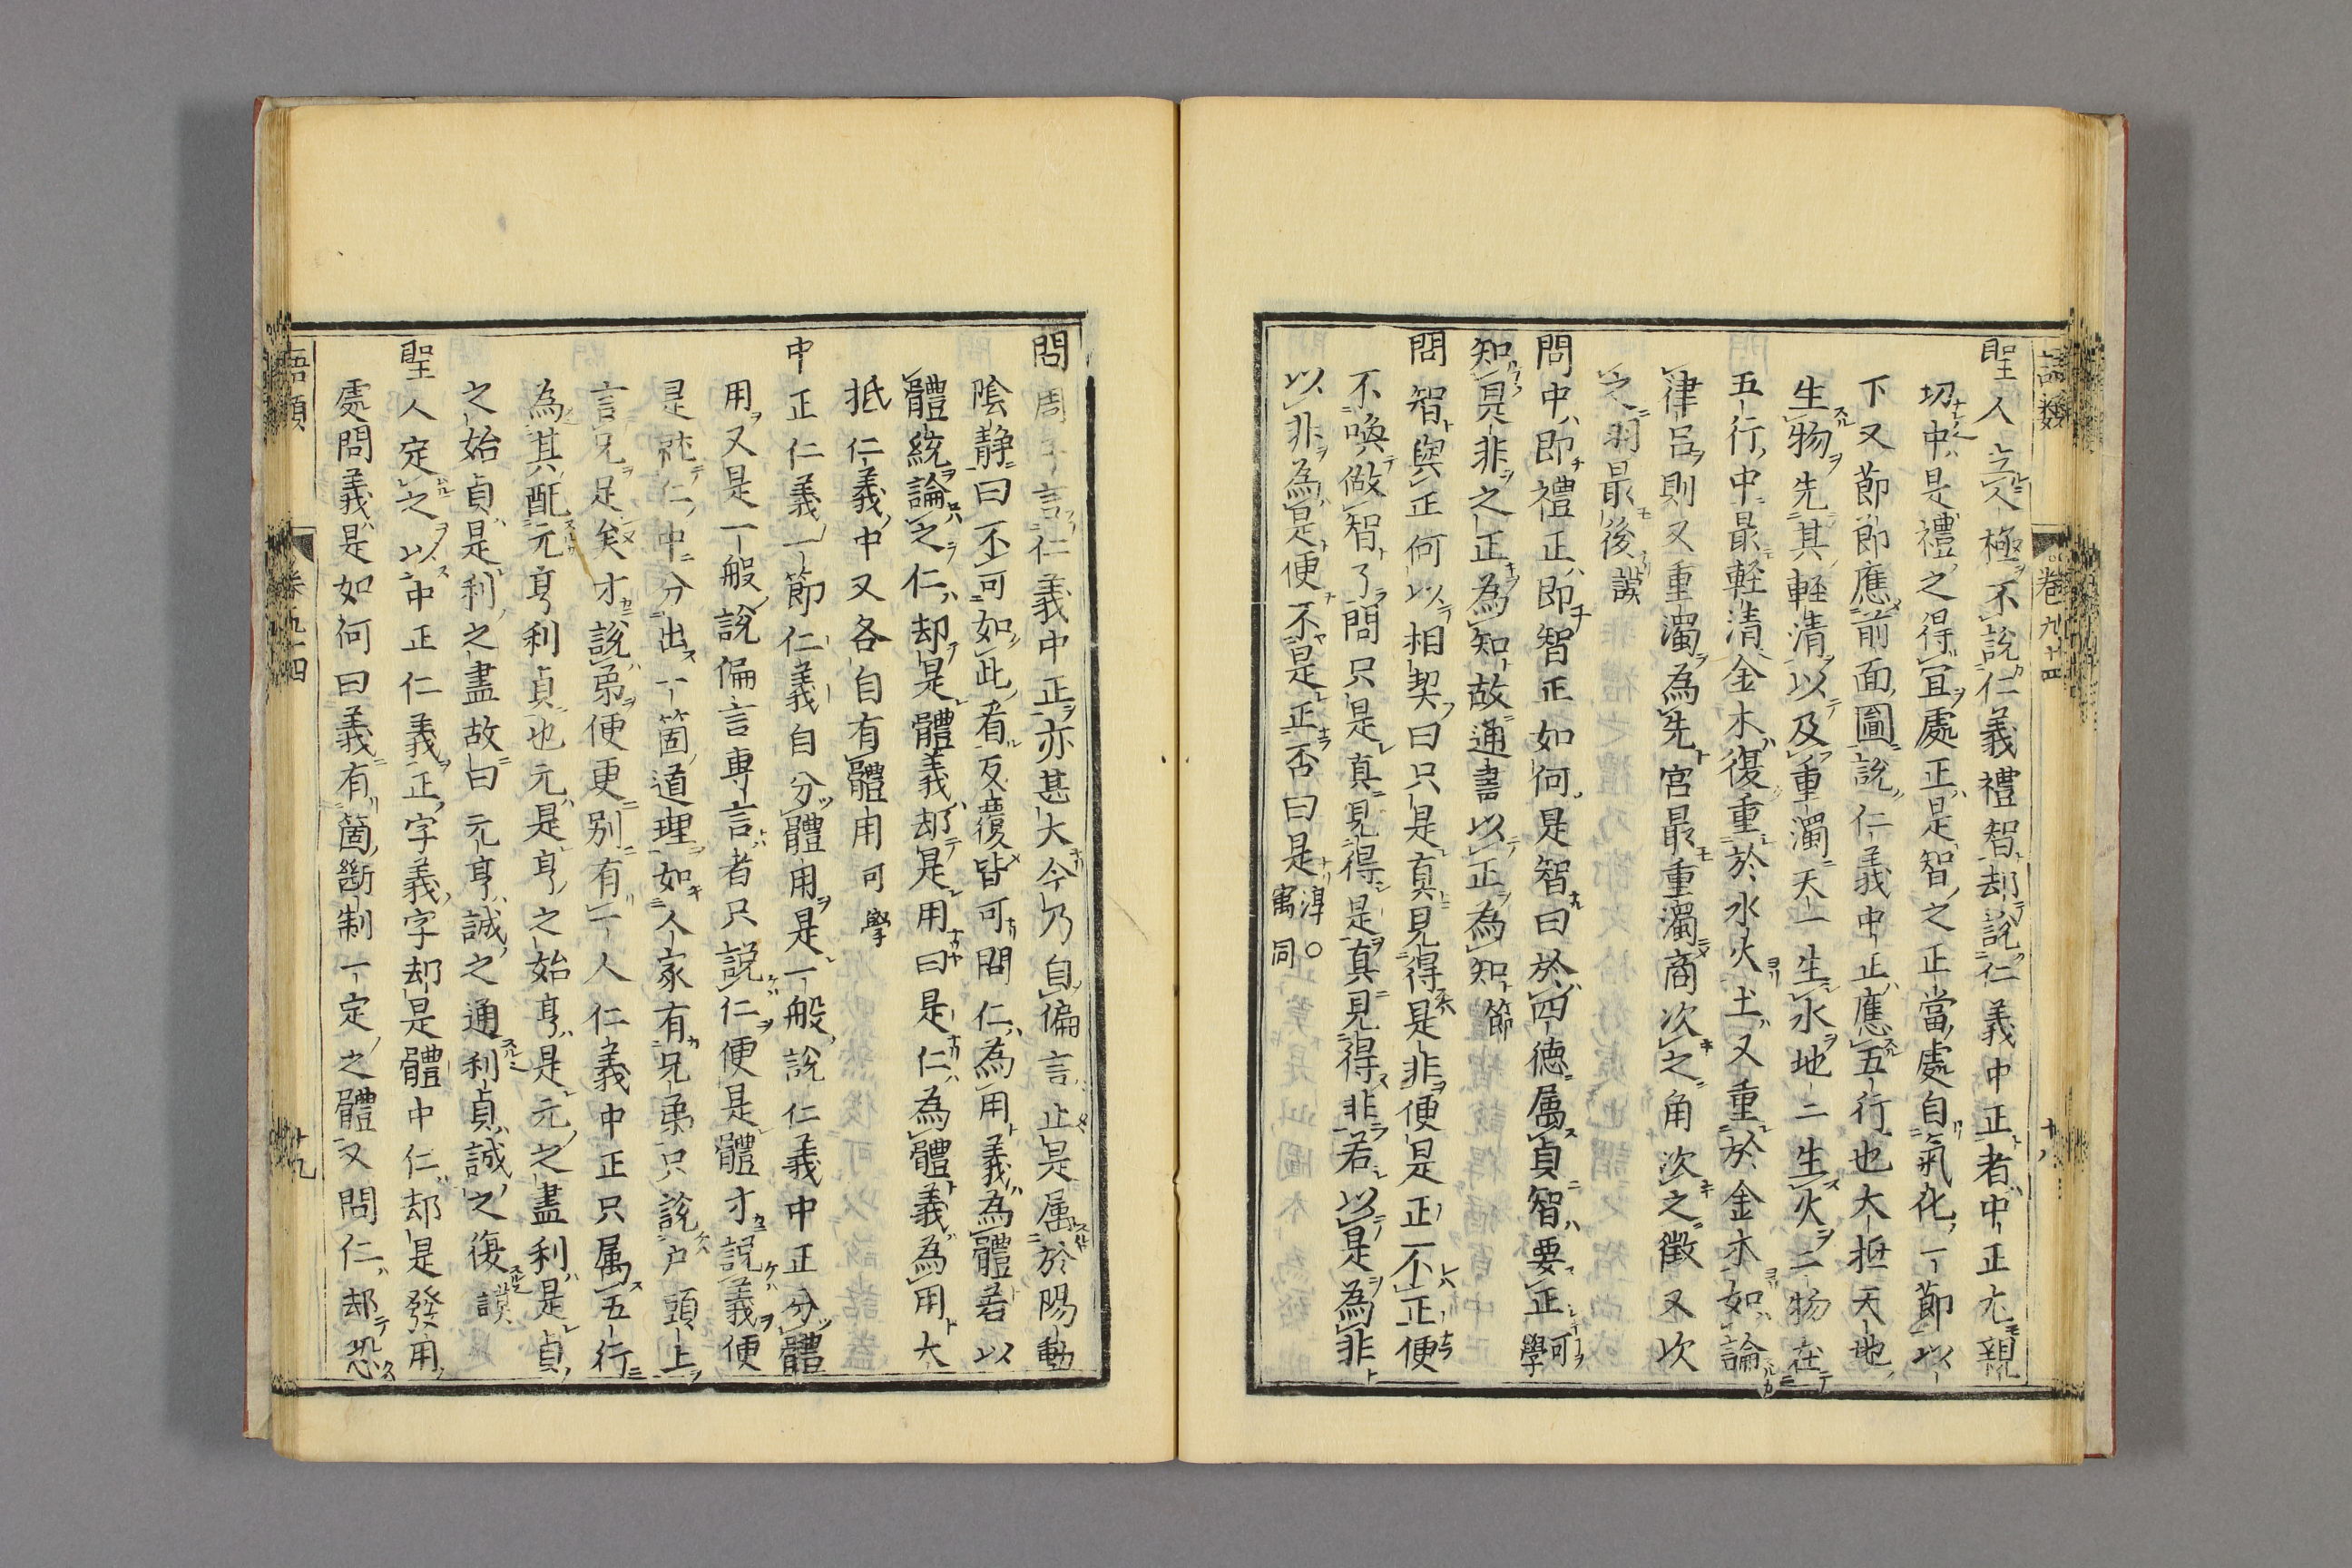 語類
卷九十四
十八
聖人立人極不說仁義禮智却說仁義中正者中正尤親
切中是禮之得宜處正是智之正當處自氣化一節以
下又節節應前面圖說仁義中正應五行也大抵天地
生物先其輕清以及重濁天一生水地二生火二物在
五行中最輕清金木復重於水火土又重於金木如論
律呂則又重濁為先宮最重濁商次之角次之徵又次
之羽最後謨
問中即禮正即智正如何是智曰於四德屬貞智要正可學
知是非之正為知故通書以正為知節
問智與正何以相契曰只是真見得是非便是正不正便
不喚做智了問只是真見得是真見得非若以是為非
以非為是便不是正否曰是淳○寓同
問周子言仁義中正亦甚大今乃自偏言止是屬於陽動
陰静曰不可如此看反覆皆可問仁為用義為體若以
體統論之仁却是體義却是用曰是仁為體義為用大
抵仁義中又各自有體用可學
中正仁義一節仁義自分體用是一般說仁義中正分體
用又是一般說偏言專言者只說仁便是體才說義便
是就仁中分出一箇道理如人家有兄弟只說戶頭上
言兄足矣才說弟便更別有一人仁義中正只属五行
為其配元亨利貞也元是亨之始亨是元之盡利是貞
之始貞是利之盡故曰元亨誠之通利貞誠之復謨
聖人定之以中正仁義正字義字却是體中仁却是發用
處問義是如何曰義有箇斷制一定之體又問仁却恐
語類
卷九十四
十九